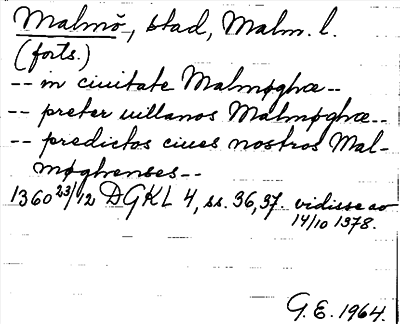 Malmö, stad, Malm. l.
(forts.)
-- in ciuitate Malmøghæ --
-- preter uillanos Malmøghæ --
-- predictos ciues nostros Mal-
møghenses --
1360 23/12 DGKL 4, ss. 36, 37. vidisse av
14/10 1378.
G.E. 1964.